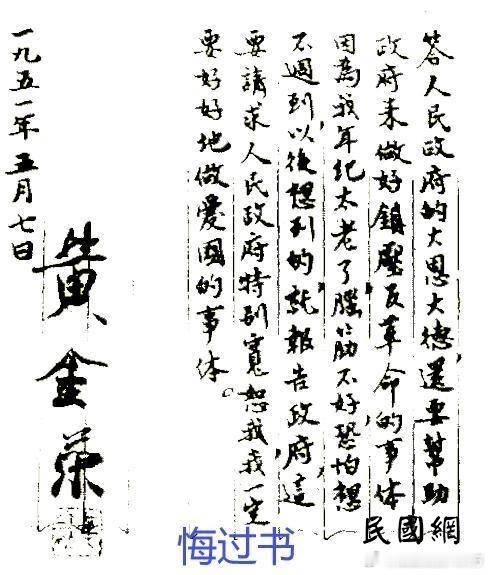 答人民政府的大恩大德，還要幫助
政府来做好鎮壓反革命的事体，
因為我年纪太老了，腦筋不好，恐怕想
不週到，以後想到的，就報告政府，這
要請求人民政府特别寬恕我，我一定
要好好地做愛國的事体。
一九五一年五月七日
黄金荣
民國網
悔过书